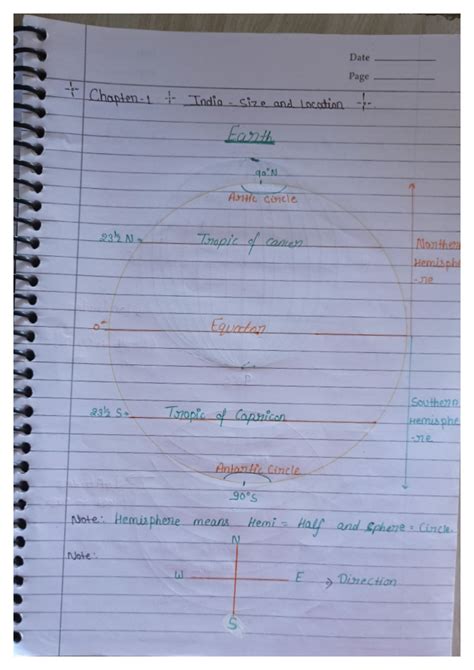 Date
Page
Chapter-1 ÷ India - Size and Location ÷
Earth
90°N
Arctic Circle
23½ N
Tropic of Cancer
Northern
Hemisphe
-re
0°
Equator
Southern
Hemisphe
-re
23½ S
Tropic of Capricon
Antarctic Circle
90°S
Note: Hemisphere means Hemi = Half and Sphere = Circle.
Note:
N
W E → Direction
S